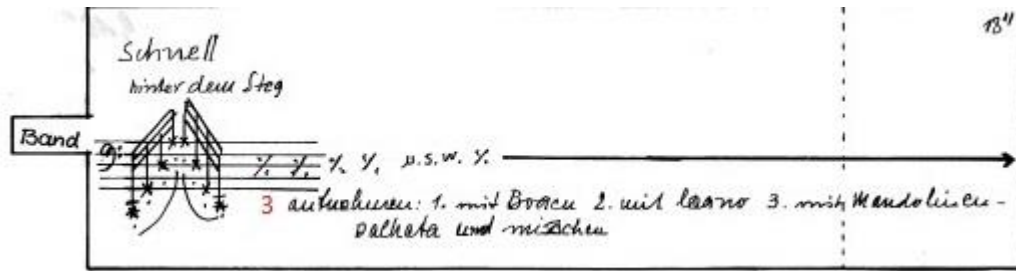 13"
Schnell
hinter dem Steg
Band
٪ ٪ ٪ ٪ u.s.w. ٪
3 aufnehmen: 1. mit Bogen 2. mit legno 3. mit Mandolinen-
palheta und mischen